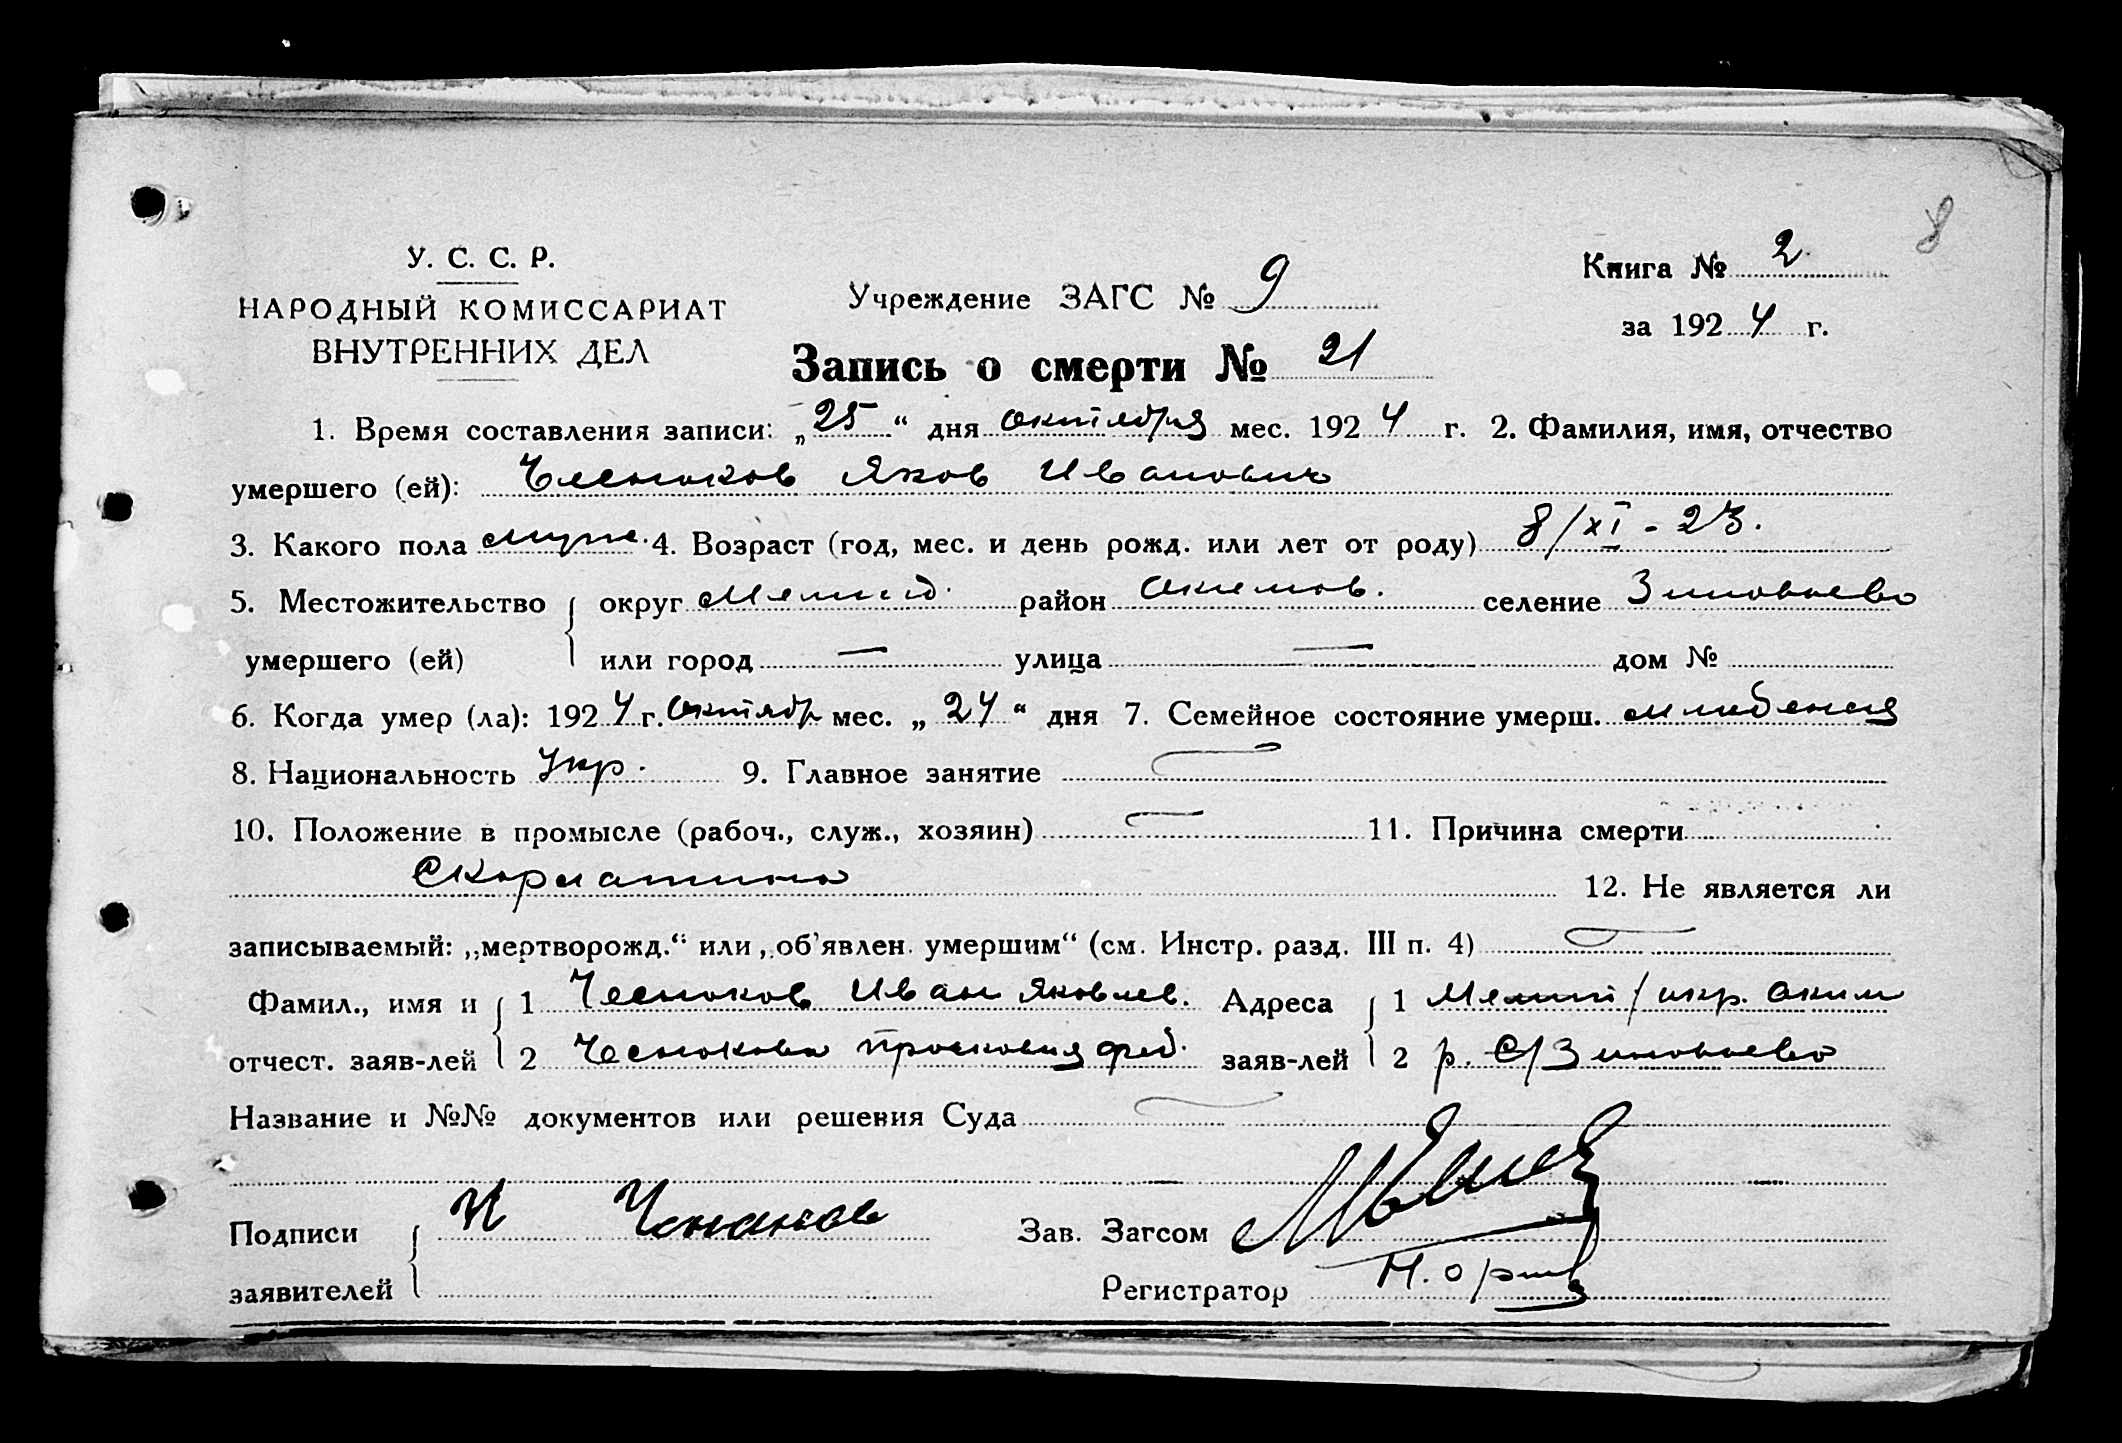 8
У. С. С. Р.
НАРОДНЫЙ КОМИССАРИАТ
ВНУТРЕННИХ ДЕЛ
Учреждение ЗАГС № 9
Книга № 2
за 1924 г.
Запись о смерти № 21
1. Время составления записи: „25“ дня октября мес. 1924 г. 2. Фамилия, имя, отчество
умершего (ей): Чесноков Яков Иванович
3. Какого пола муж. 4. Возраст (год, мес. и день рожд. или лет от роду) 8/XI - 23.
5. Местожительство округ Мелит. район Акимов. селение Зиновьево
умершего (ей) или город — улица — дом №
6. Когда умер (ла): 1924 г. октябр мес. „24“ дня 7. Семейное состояние умерш. младенец
8. Национальность Укр. 9. Главное занятие —
10. Положение в промысле (рабоч., служ., хозяин) — 11. Причина смерти
Скарлатина 12. Не является ли
записываемый: „мертворожд.“ или „об’явлен. умершим“ (см. Инстр. разд. III п. 4) —
Фамил., имя и 1 Чесноков Иван Яковлев. Адреса 1 Мелит/окр. Аким
отчест. заяв-лей 2 Чеснокова Просковия Фед. заяв-лей 2 р. С/Зиновьево
Название и №№ документов или решения Суда —
Подписи И Чеснаков Зав. Загсом
заявителей Регистратор